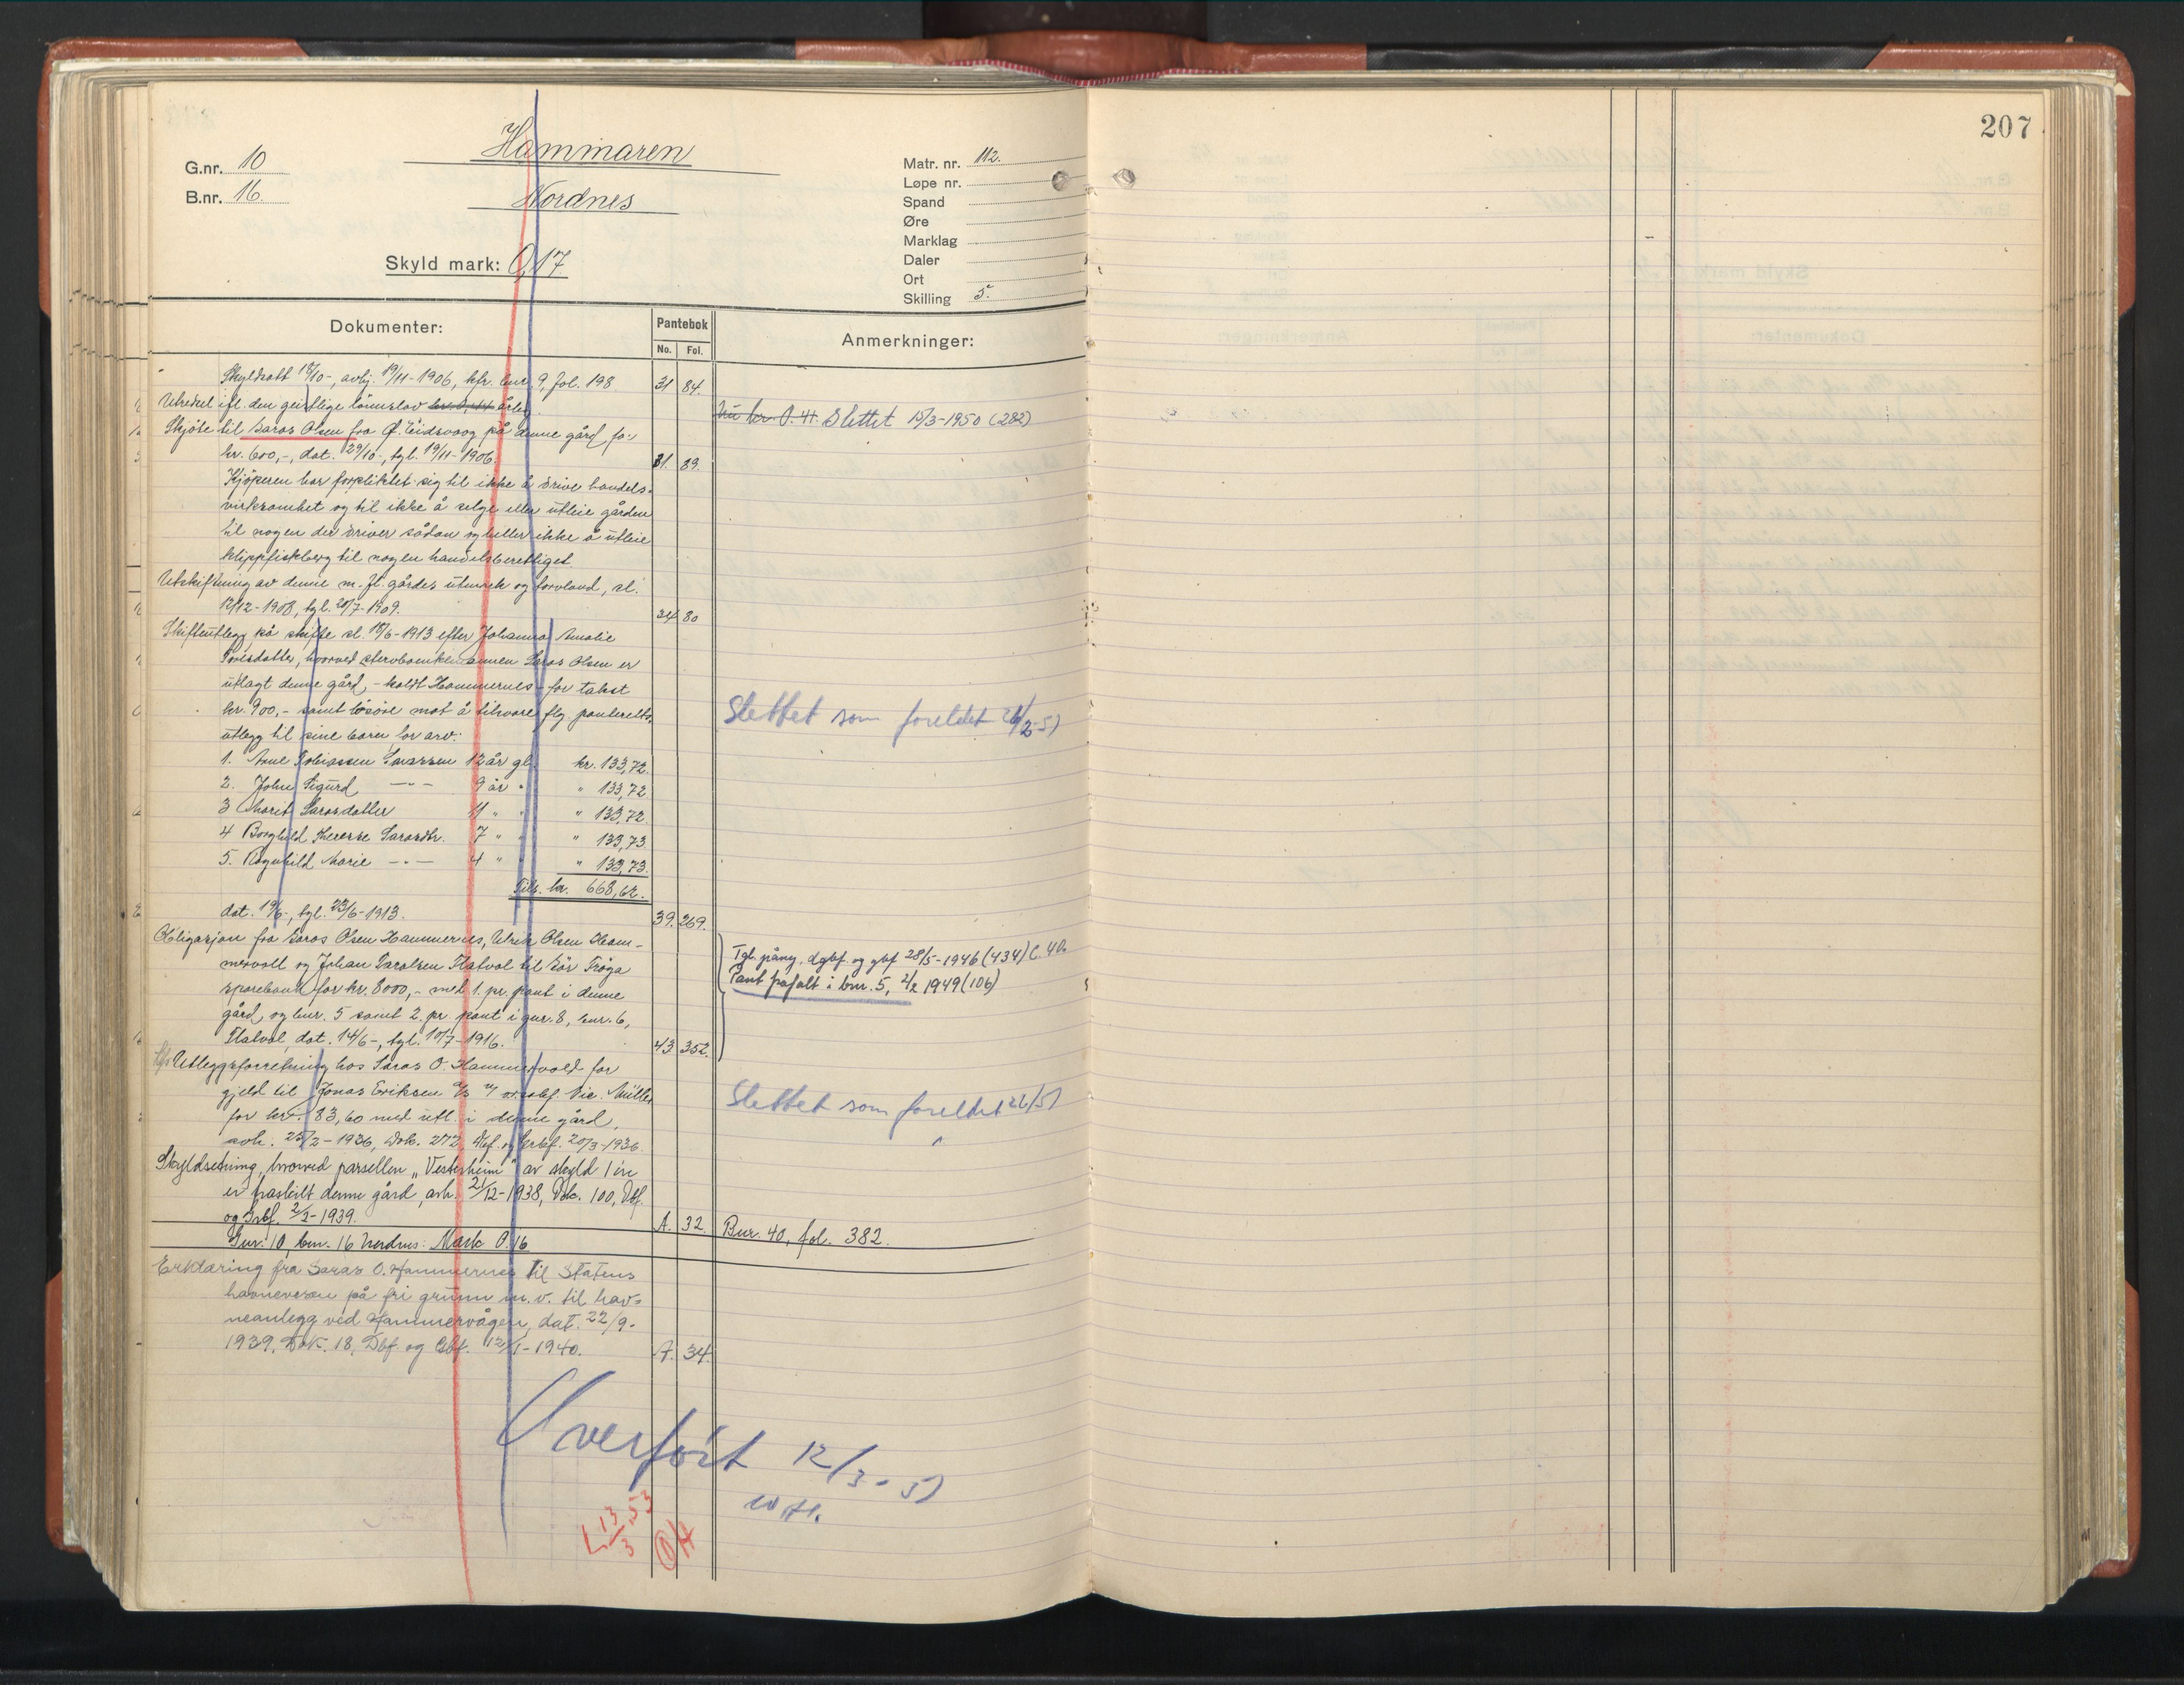 207
G.nr. 10
B.nr. 16.
Hammaren
Nordnes
Skyld mark: 0,17
Matr. nr. 112.
Løpe nr.
Spand
Øre
Marklag
Daler
Ort
Skilling 5.
Dokumenter:
Pantebok
No. Fol.
Anmerkninger:
Skyldsatt 18/10-, avhj. 19/11-1906, kfr. bnr. 9, fol. 198. 31 84.
Utredsel ifl. den geistlige lønnslov årlig. Slettet 15/3-1950 (282)
Skjöte til Saros Olsen fra O. Eidsvaag på denne gård for
kr. 600,-, dat. 29/10-, tgl. 19/11-1906. 31. 89.
Kjöperen har forpliktet sig til ikke å drive handels-
virksomhet og til ikke å selge eller utleie gården
til nogen der driver sådan og heller ikke å utleie
klippfiskberg til nogen handelsberettiget.
Utskiftning av denne m. fl. gårdes utmark og torvland, sl.
12/12-1908, tgl. 20/7-1909. 34 80
Skifteutlegg på skifte sl. 18/6-1913 efter Johanna Amalie
hvorved stervboenkemannen Saros Olsen er
utlagt denne gård, - kaldt Hammernes - for takst
kr. 900,- samt løsøre mot å tilsvare flg. panteretts-
utlegg til sine barn for arv:
Slettet som foreldet
1. Arne Sarossen 12 år gl. kr. 133,72.
2. John Sigurd -"- 9 år " " 133,72
3 Marit Sarosdatter 11 " " " 133,72.
4 Borghild Therese Sarosdtr. 7 " " " 133,73.
5. Ragnhild Marie -"- 4 " " " 133,73.
Tils. kr. 668,62.
dat. 19/6-, tgl. 23/6-1913. 39. 269.
Obligasjon fra Saros Olsen Hammernes, Olsen Ham-
mervoll og Johan Flatval til Sör Fröya
sparebank for kr. 8000,- med 1. pr. pant i denne
gård, og bnr. 5 samt 2. pr. pant i gnr. 8, bnr. 6,
Flatval, dat. 14/6-, tgl. 10/7-1916. 43. 352.
Tgl. påny, dgbf. og gbf 28/5-1946 (434)
Pant frafalt i bnr. 5, 2/2 1949 (106)
Utleggsforretning hos Saros O. Hammervold for
gjeld til Jonas Eriksen Müller
for kr. 83,60 med utl. i denne gård,
avh. 25/2-1936, Dok. 272, Dbf. og Grbf. 20/3-1936
Slettet som foreldet
Skyldsetning, hvorved parsellen „Vesterheim“ av skyld 1 øre
er fraskilt denne gård, avh. 21/12-1938, Dok. 100, Dbf.
og Grbf. 2/2-1939. A. 32. Bnr. 40, fol. 382.
Gnr. 10, bnr. 16 Nordnes: Mark 0.16
Erklæring fra Saros O. Hammernes til Statens
havnevesen på fri grunn m.v. til hav-
neanlegg ved Hammervågen, dat. 22/9-
1939, Dok. 18, Dbf og Gbf. 12/1-1940. A. 34.
Overført 12/3-51
13/3 53